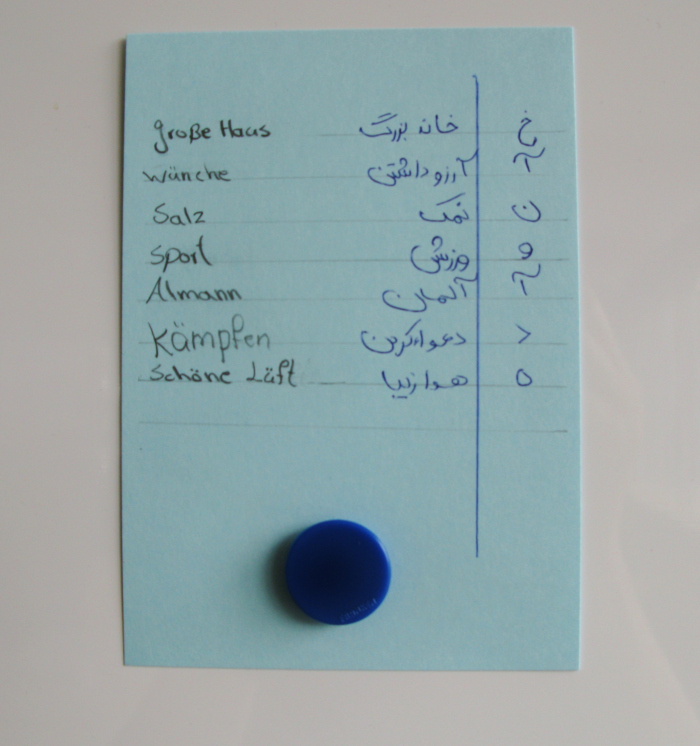 große Haus خانه بزرگ خ
wünche آرزو داشتن آ
Salz نمک ن
Sport ورزش و
Almann آلمان آ
Kämpfen دعوا کردن د
Schöne Läft هوا زیبا ه